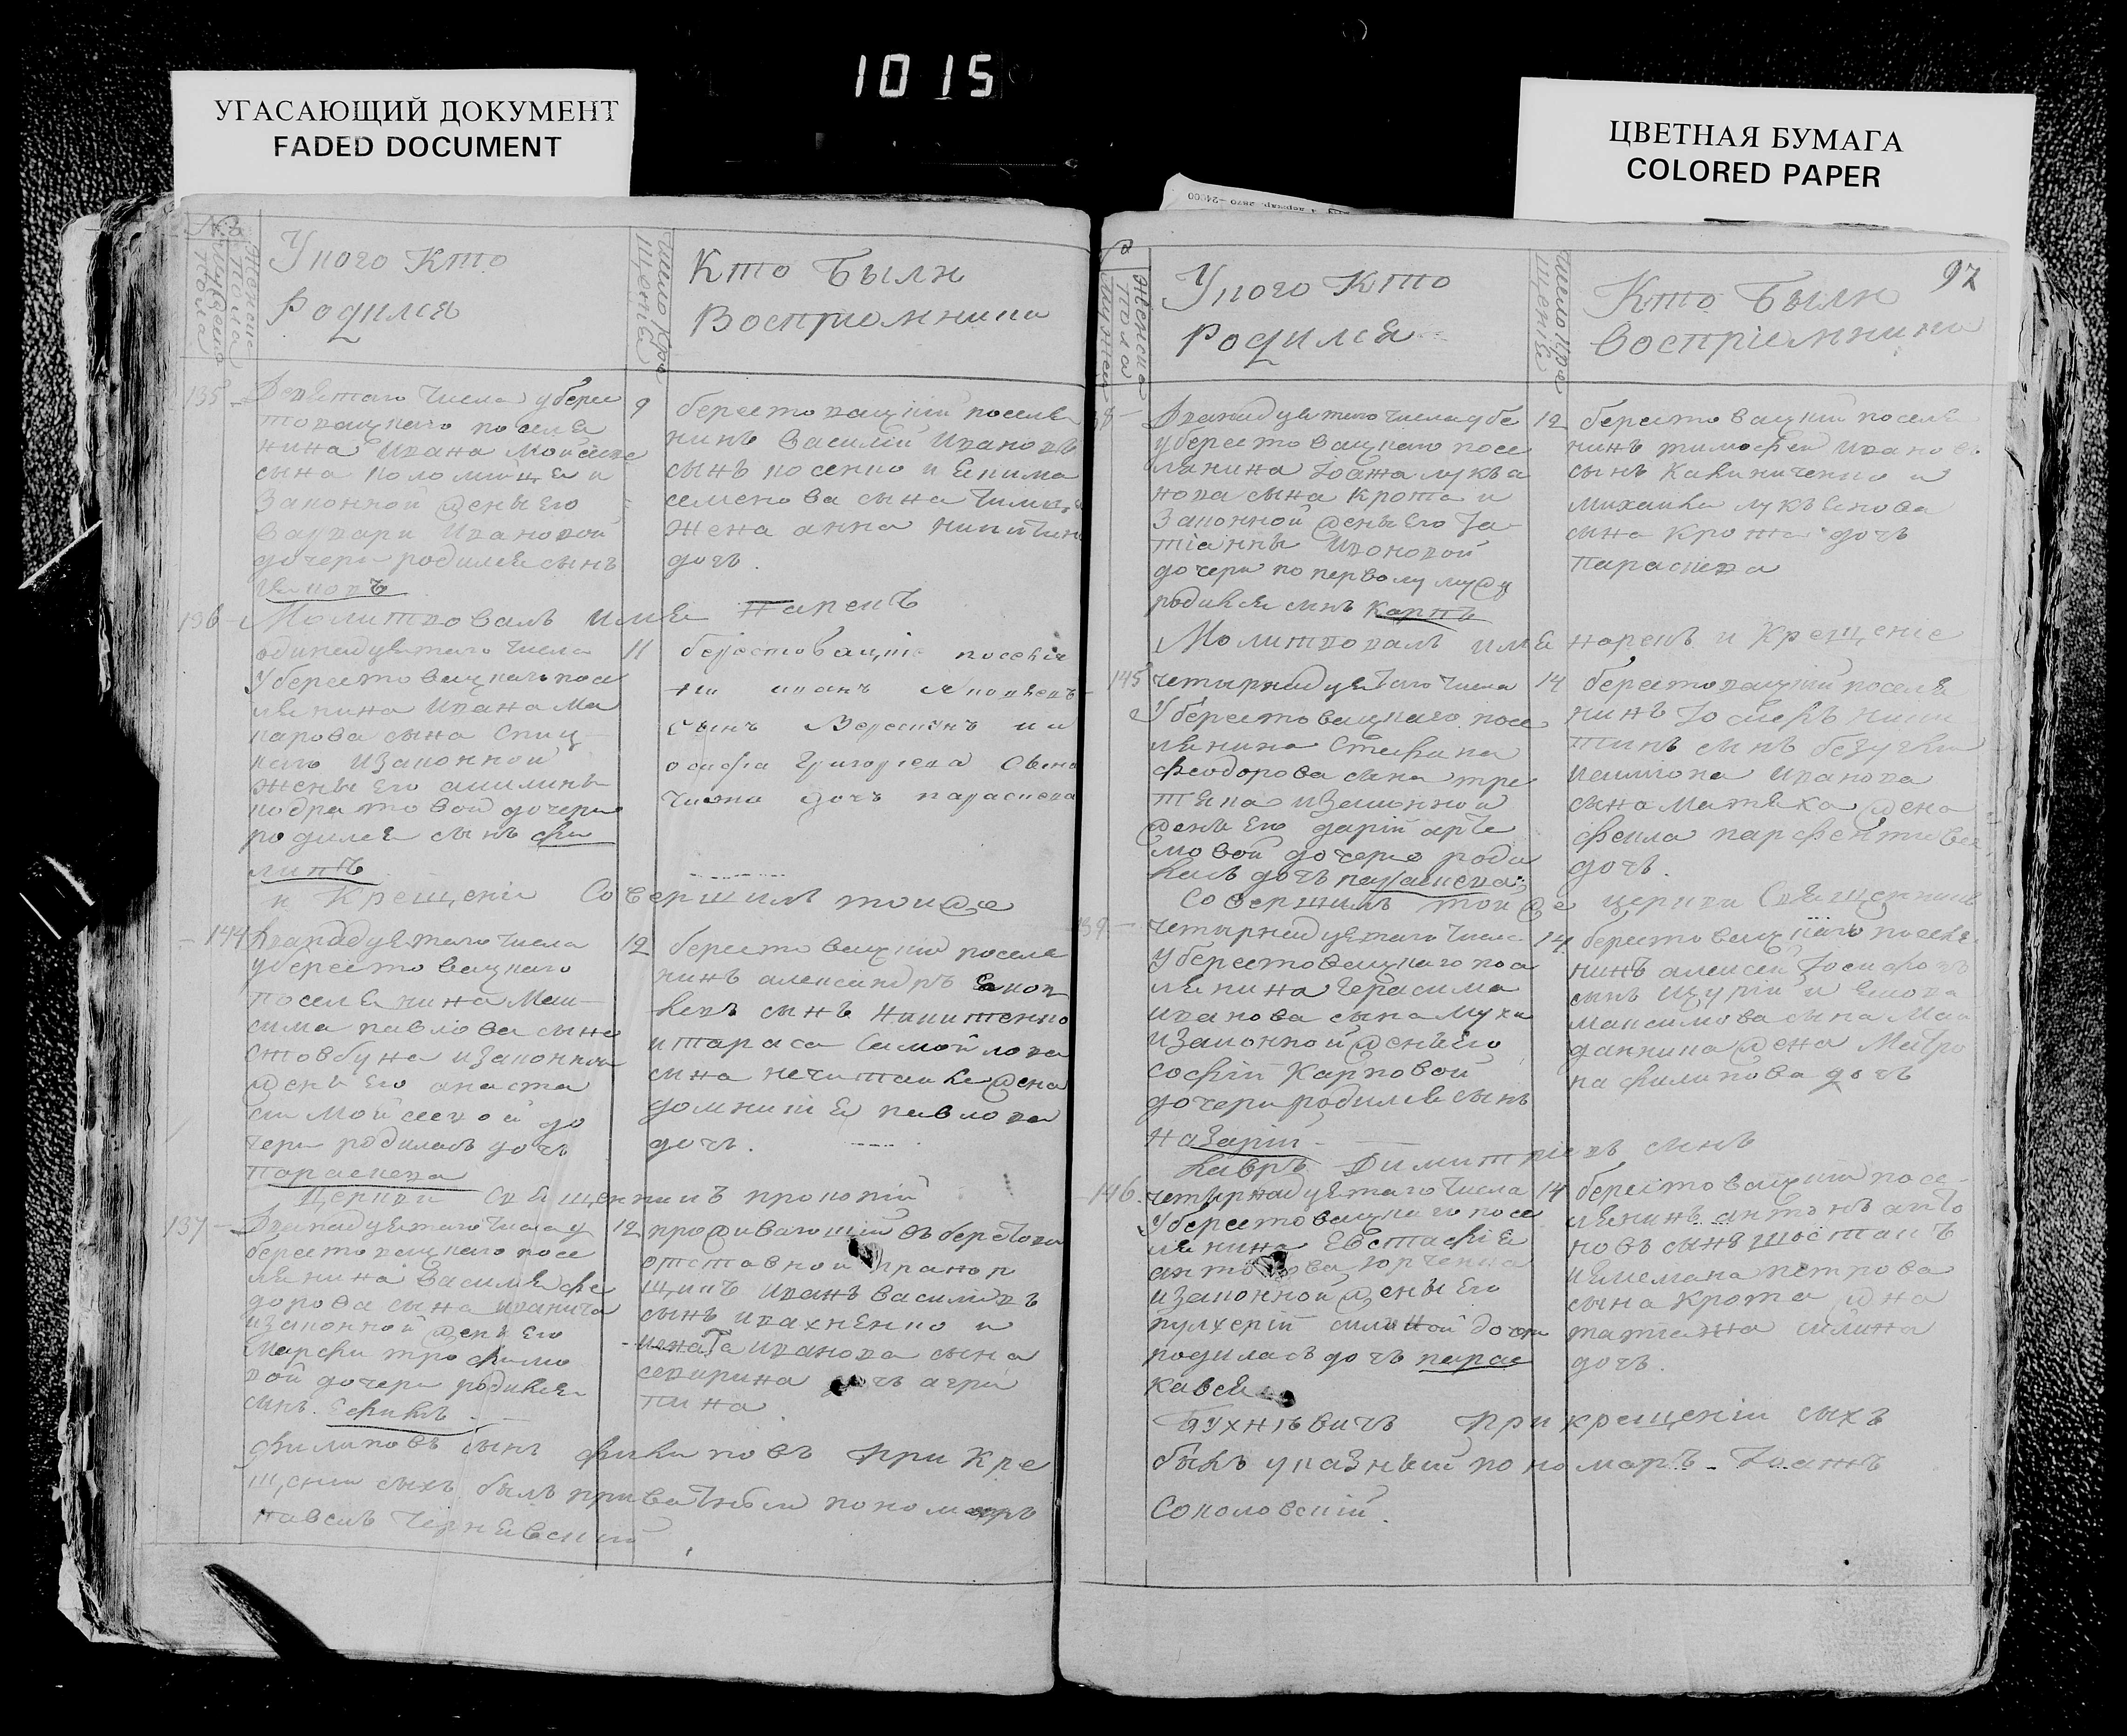 1015
УГАСАЮЩИЙ ДОКУМЕНТ
FADED DOCUMENT
ЦВЕТНАЯ БУМАГА
COLORED PAPER
У кого Кто
Родился
Число Кре
щенія
Кто Были
Восприемники
135
Девятаго числа у берес
товацкаго поселя
нина Ивана Мойсеева
сына коломийца и
Законной жены его
Варвари Ивановой
дочери родился сынъ
Яковъ
9
берестовацкий поселя
нинъ Василий Ивановъ
сынъ косенко и Екима
семенова сына
жена анна никитина
дочь
136
Молитвовалъ имя нарекъ
одинадцятаго числа
У берестовацкаго посе
лянина Ивана Ма
карова сына Спиц
каго и Законной
жены его акилины
кодратовой дочери
родился сынъ фи
липъ
11
берестовацкие поселя
не иванъ яковлевъ
сынъ и
осифа Григориева
дочь параскева
и Крещение Совершилъ тойже
144
Дванадцятаго числа
у берестовацкаго
поселянина Мак
сима павлова сына
стовбуна и законной
жены его анаста
сии Мойсеевой до
чери родилась дочь
Параскева
12
берестовацкий поселя
нинъ александръ Яков
левъ сынъ Никитенко
и тараса Самойлова
сына нечитайла жена
домникия павлова
дочь.
Церкви Священникъ прокопий
137
Дванадцятаго числа у
берестовацкаго посе
лянина Василя фе
дорова сына иванича
и законной жены его
Марфи трофимо
вой дочери родился
сынъ Ефимъ
12
проживающий въ берестовц
отставной прапор
щикъ Иванъ Василиевъ
сынъ ивахненко и
игната иванова сына
северина дочь агри
пина
филиповъ сынъ филиповъ при Кре
щении сихъ былъ приватный пономаръ
павелъ Чернявский
97
У кого Кто
Родился
Кто Были
восприемники
Дванадцятаго числа у бе
у берестовацкаго посе
лянина Іоана лукья
нова сына Крота и
Законной жены его Та
тіанны Ивановой
дочери по первому мужу
родился сынъ Карпъ
12
берестовацкий поселя
нинъ тимофей Ивановъ
сынъ Калиниченко и
михаила лукьянова
сына Крота дочь
параскева
Молитвовалъ имя нарекъ и Крещение
145
четырнадцятаго числа
У берестовацкаго посе
лянина Стефана
феодорова сына тре
тяка и законной
жены его дарии арте
мовой дочери роди
лась дочь параскева
14
берестовацкий поселя
нинъ Іосифъ ники
тинъ сынъ
Иванова
сына жена
фекла парфентиева
дочь.
Совершилъ тойже церкви Священникъ
139
четырнадцятаго числа
У берестовацкаго посе
лянина Герасима
иванова сына Мухи
и законной жены его
софий Карповой
дочери родился сынъ
Назарий
14
берестовацкаго поселя
нинъ алексей Іосифовъ
сынъ Щурий и Якова
Максимова сына
жена Матро
на филипова дочь
Лавръ Димитриевъ сынъ
146
четырнадцятаго числа
У берестовацкаго посе
лянина Евстафия
юрченка
и законной жены его
пулхерий силиной дочери
родилась дочь парас
кавея
14
берестовацкий посе
лянинъ антонъ анто
новъ сынъ шостакъ
петрова
сына Крота жена
татияна силина
дочь.
Бухнѣвичъ при крещении сихъ
былъ указный пономаръ Іоанъ
Соколовский.